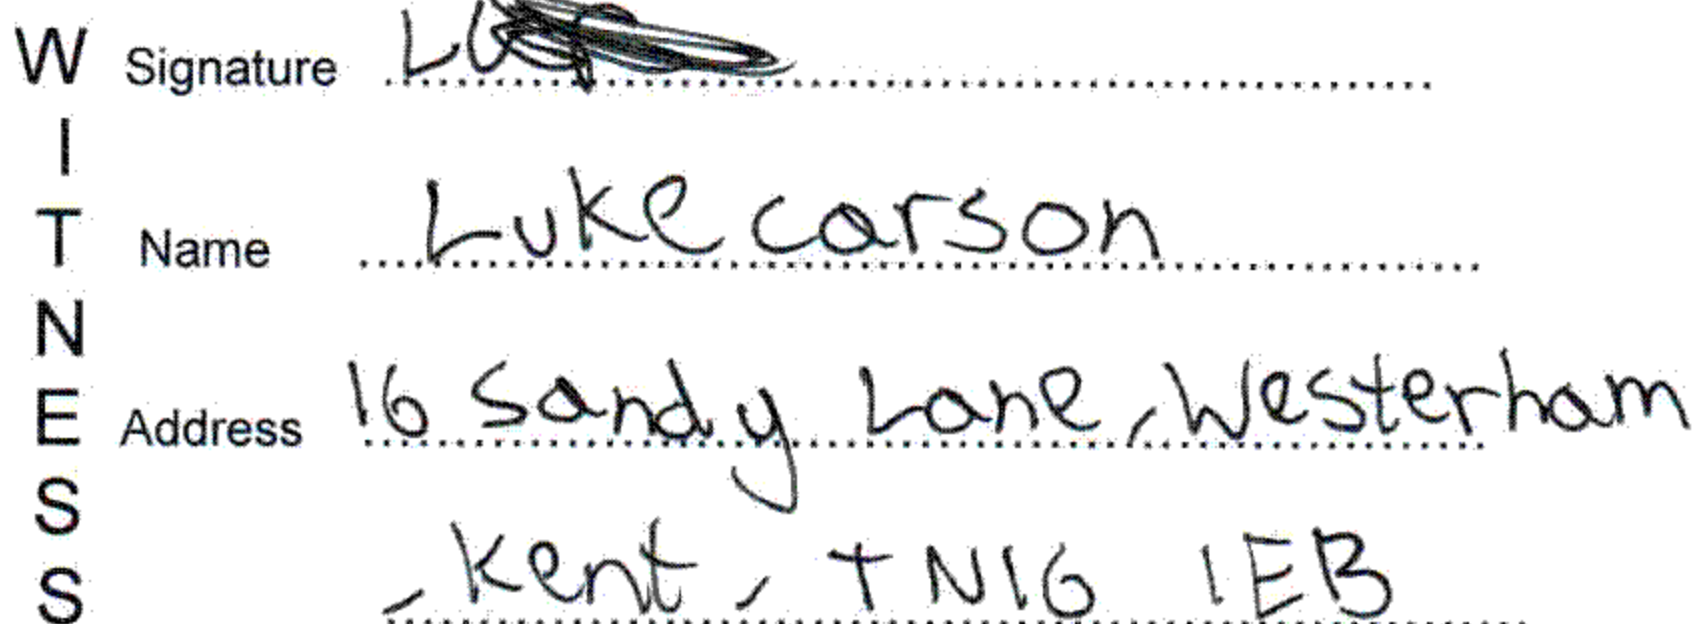 W Signature
I
T Name Luke carson
N
E Address 16 Sandy Lane, Westerham
S
S , Kent, TN16 1EB